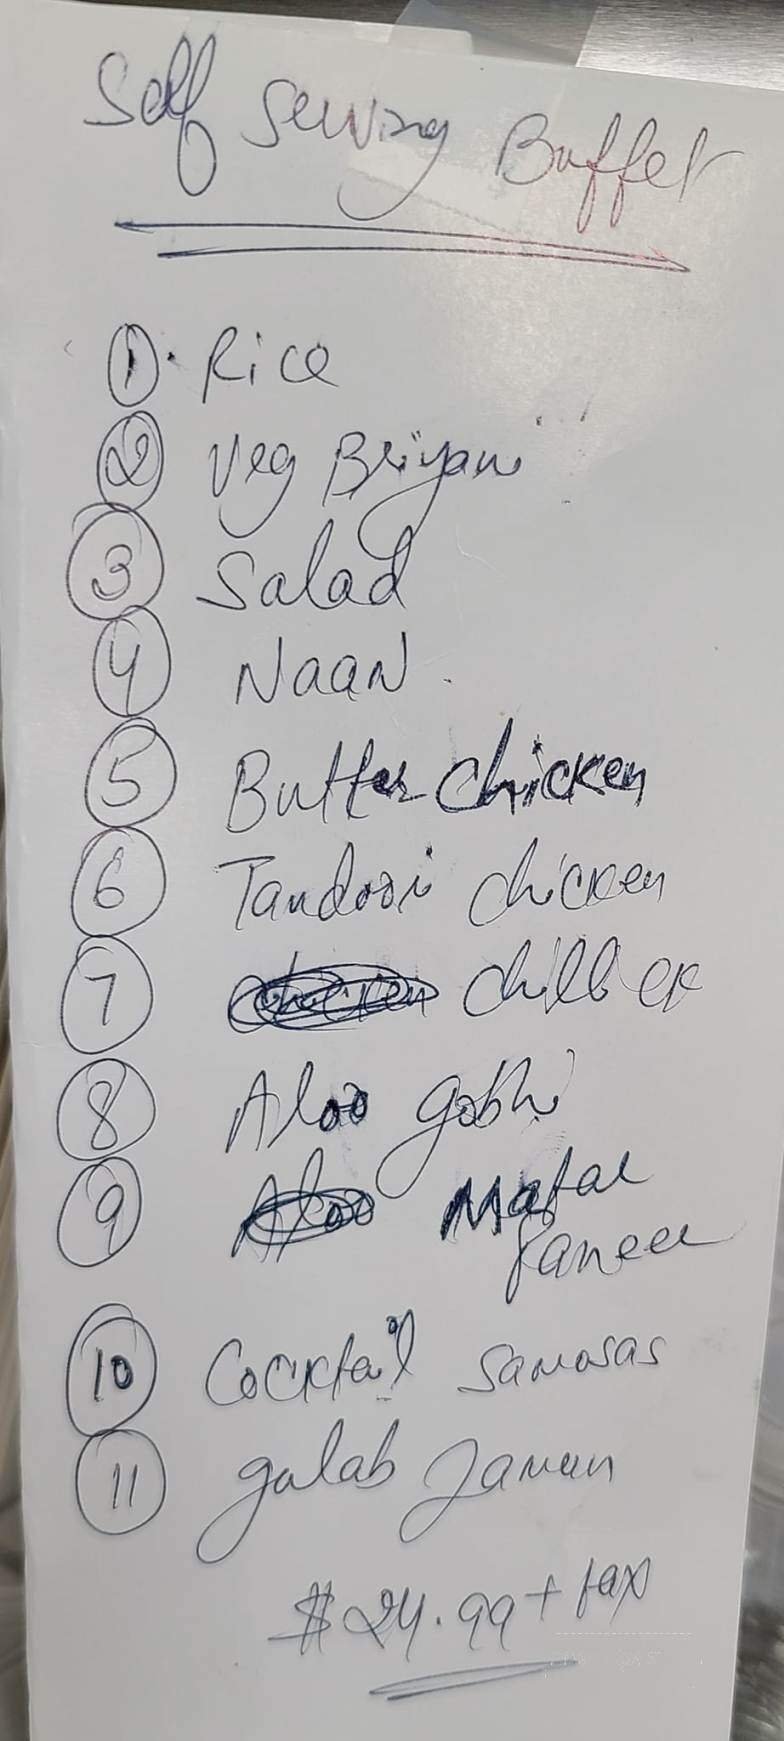 Self Serving Buffet
1. Rice
2 Veg Briyani
3 Salad
4 Naan
5 Butter chicken
6 Tandoori chicken
7 chilli
8 Aloo gobhi
9 Matar
Paneer
10 Cocktail Samosas
11 gulab Jamun
$24.99 + tax